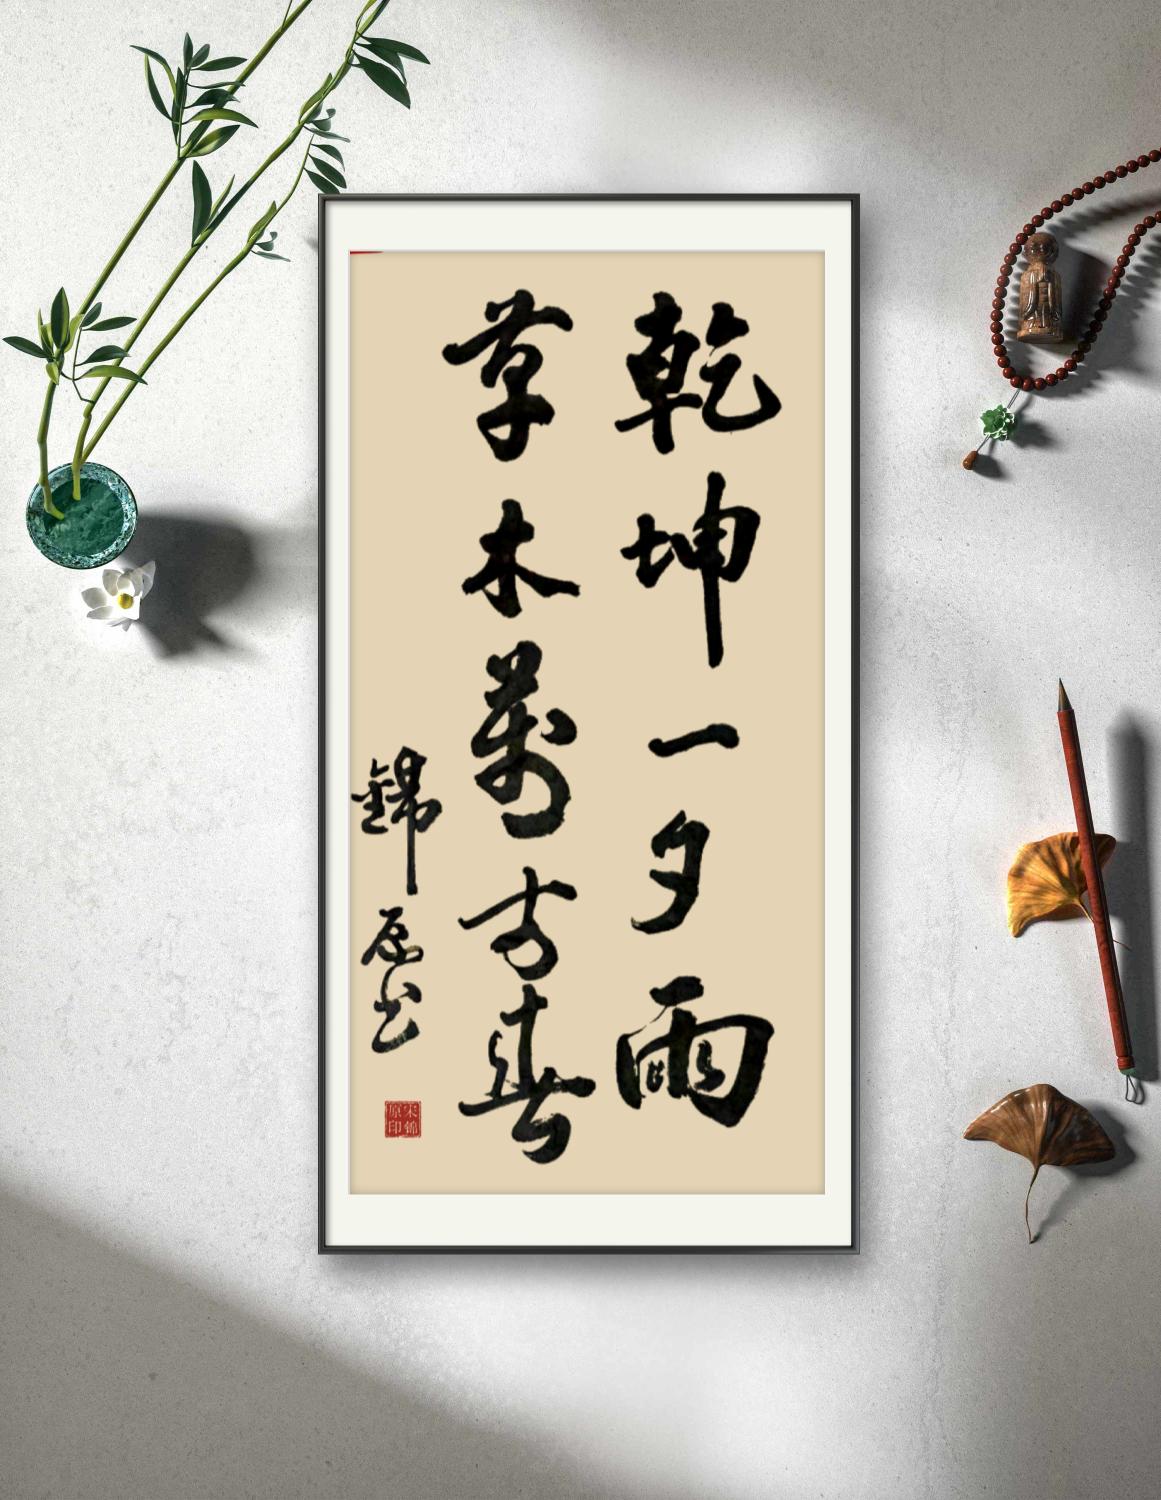 乾坤一夕雨
草木萬方春
錦原书
朱錦
原印